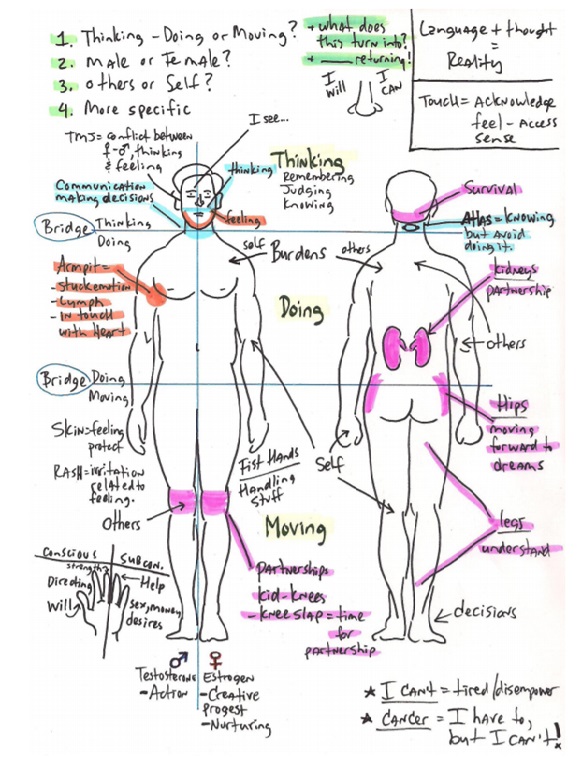 1. Thinking - Doing or Moving?
2. Male or Female?
3. Others or Self?
4. More specific
+ what does
this turn into?
+ ___ returning!
I will
I CAN
Language + thought
=
Reality
Touch = Acknowledge
feel - Access
sense
I see...
TMJ = conflict between
♀-♂, thinking
& feeling
Thinking
Remembering
Judging
Knowing
thinking
Communication
making decisions
feeling
Survival
Bridge
Thinking
Doing
ATLAS = Knowing
but avoid
doing it.
self
Burdens
others
Armpit =
- Stuck emotion
- Lymph
- In touch
with Heart
Doing
kidneys
partnership
others
Bridge
Doing
Moving
Skin = feeling
protect
RASH = irritation
related to
feeling.
Others
Fist Hands
Handling
Stuff
Self
Hips
moving
forward to
dreams
Moving
legs
understand
Conscious
Subcon.
strength
Directing
Will
Help
Sex, money,
desires
Partnerships
kid-knees
- knee slap = time
for
partnership
decisions
♂ ♀
Testosterone
- Action
Estrogen
- Creative
progest
- Nurturing
* I CAN'T = tired/disempower
* CANCER = I have to,
but I CAN'T!